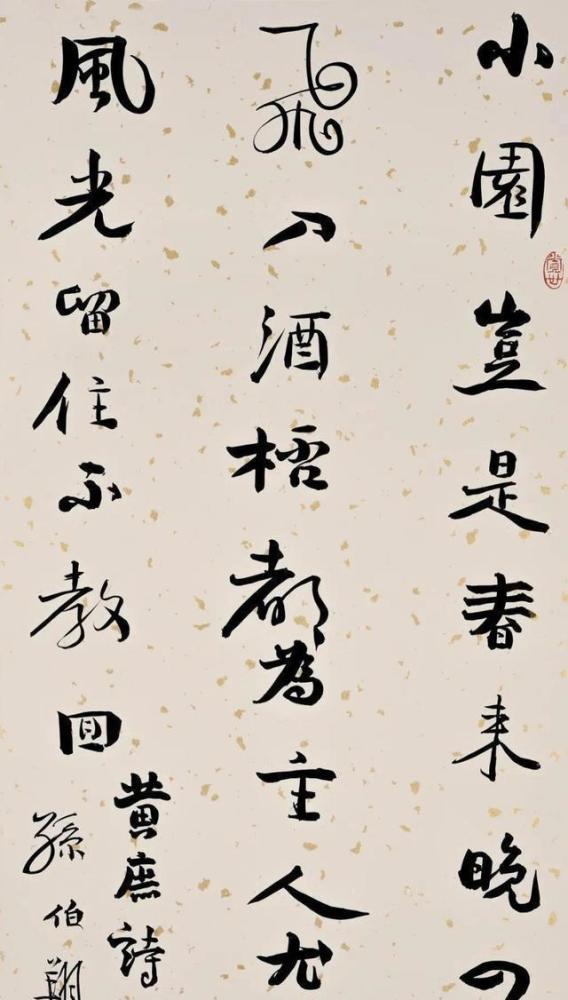 小園豈是春来晚四
飛入酒桮都為主人尤
風光留住不教回
黄庶詩
孫伯翔